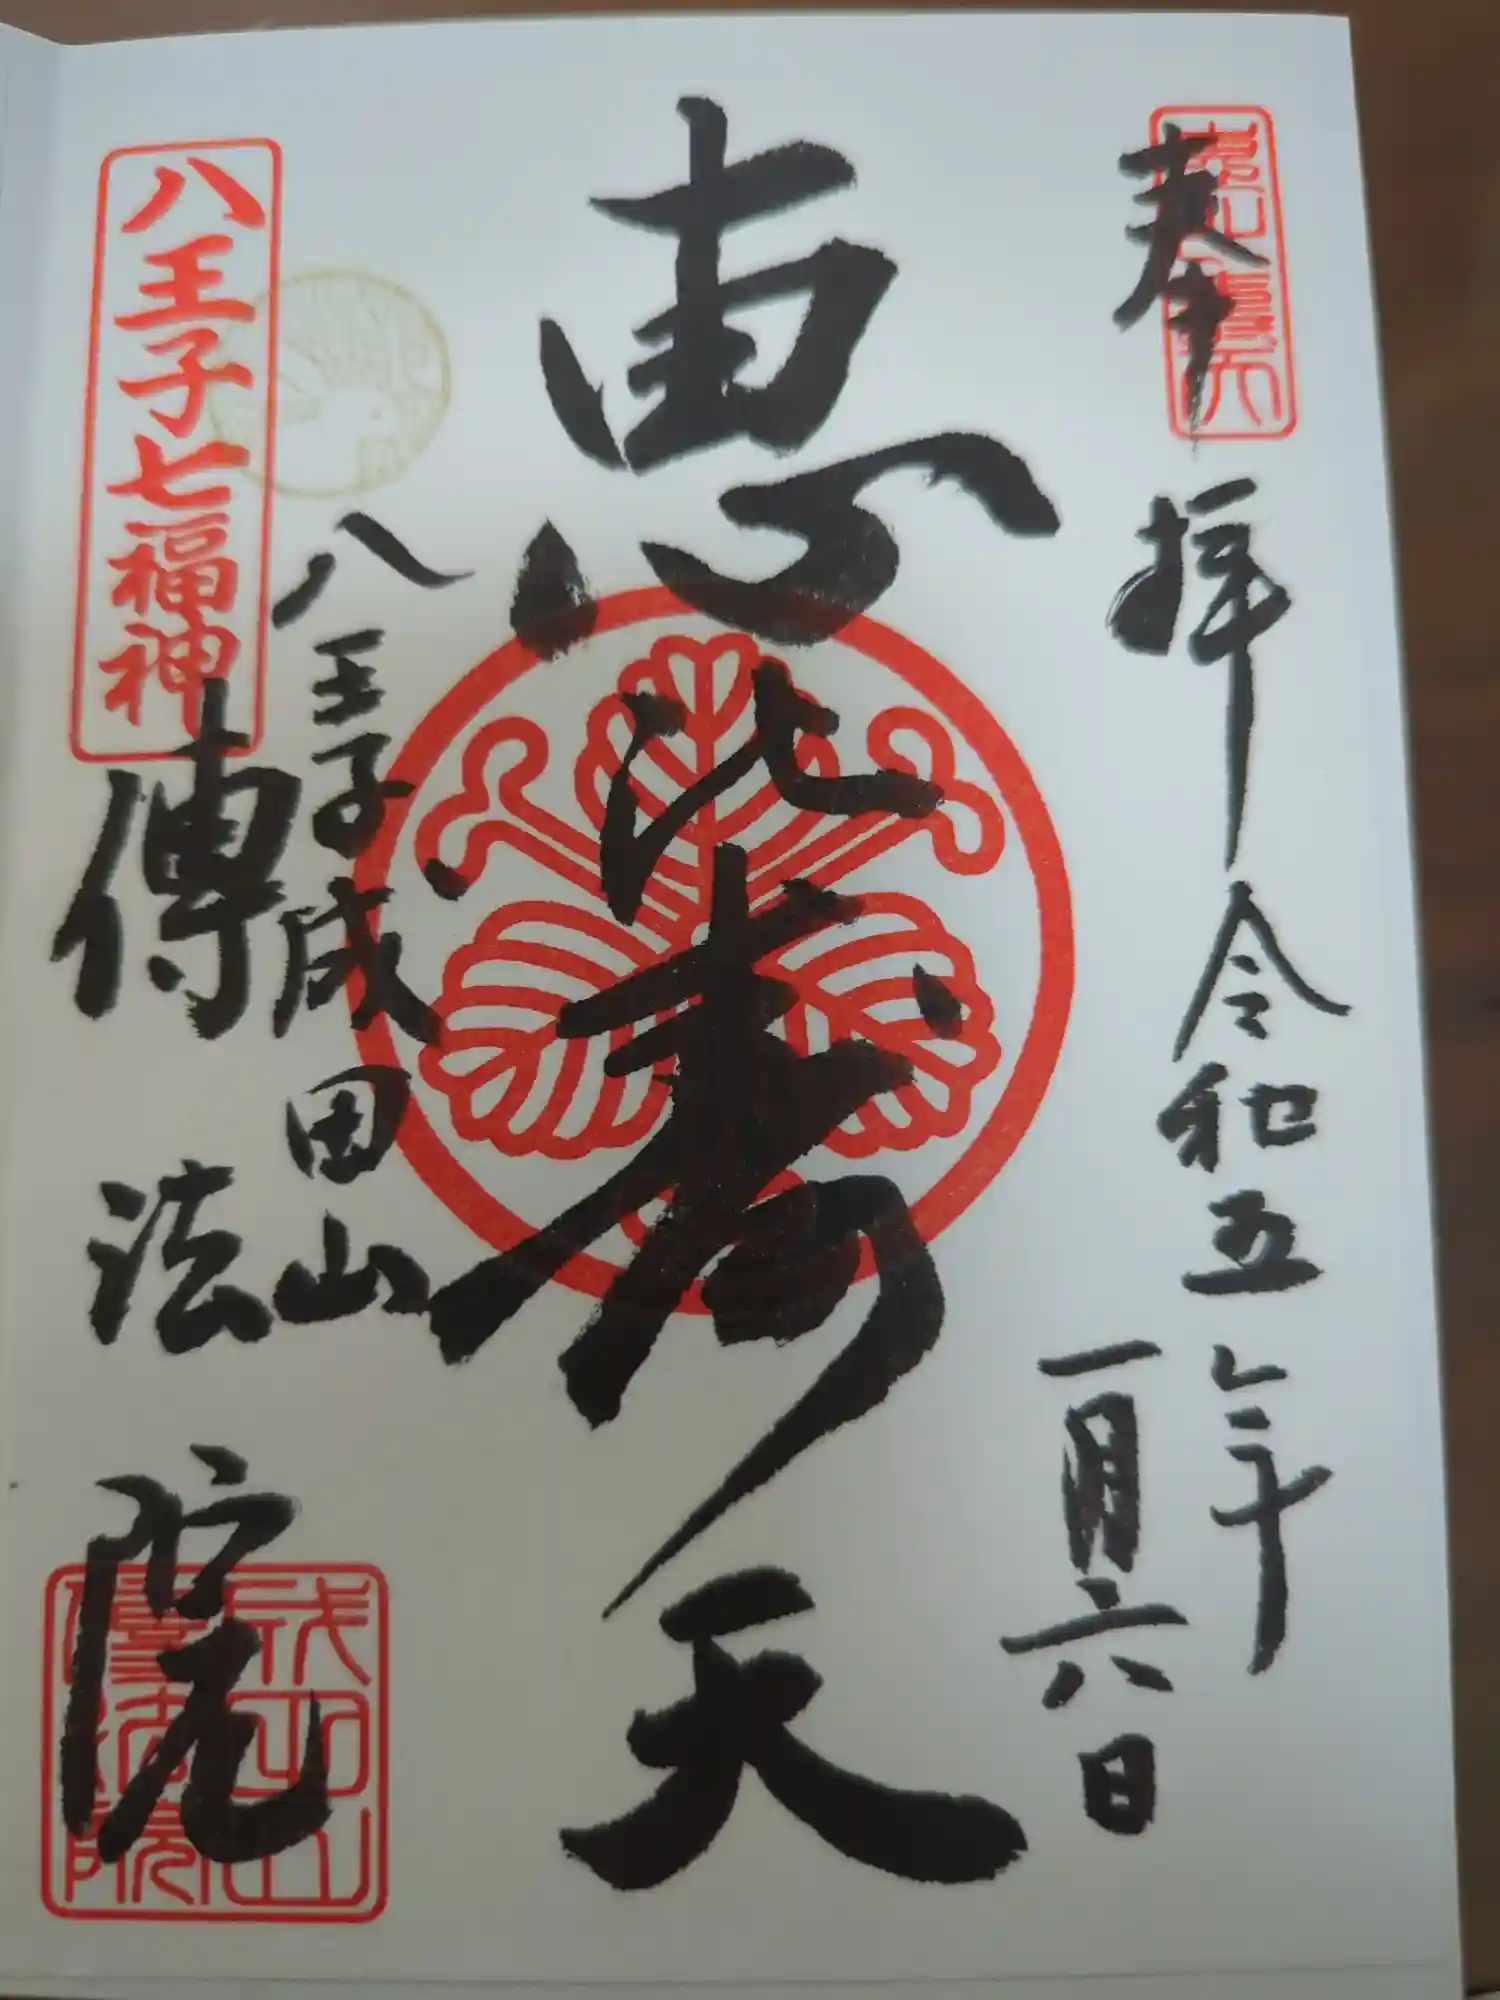 奉拝
令和五年
一月六日
恵比寿天
八王子成田山
傳法院
八王子七福神
成田山
傳法院